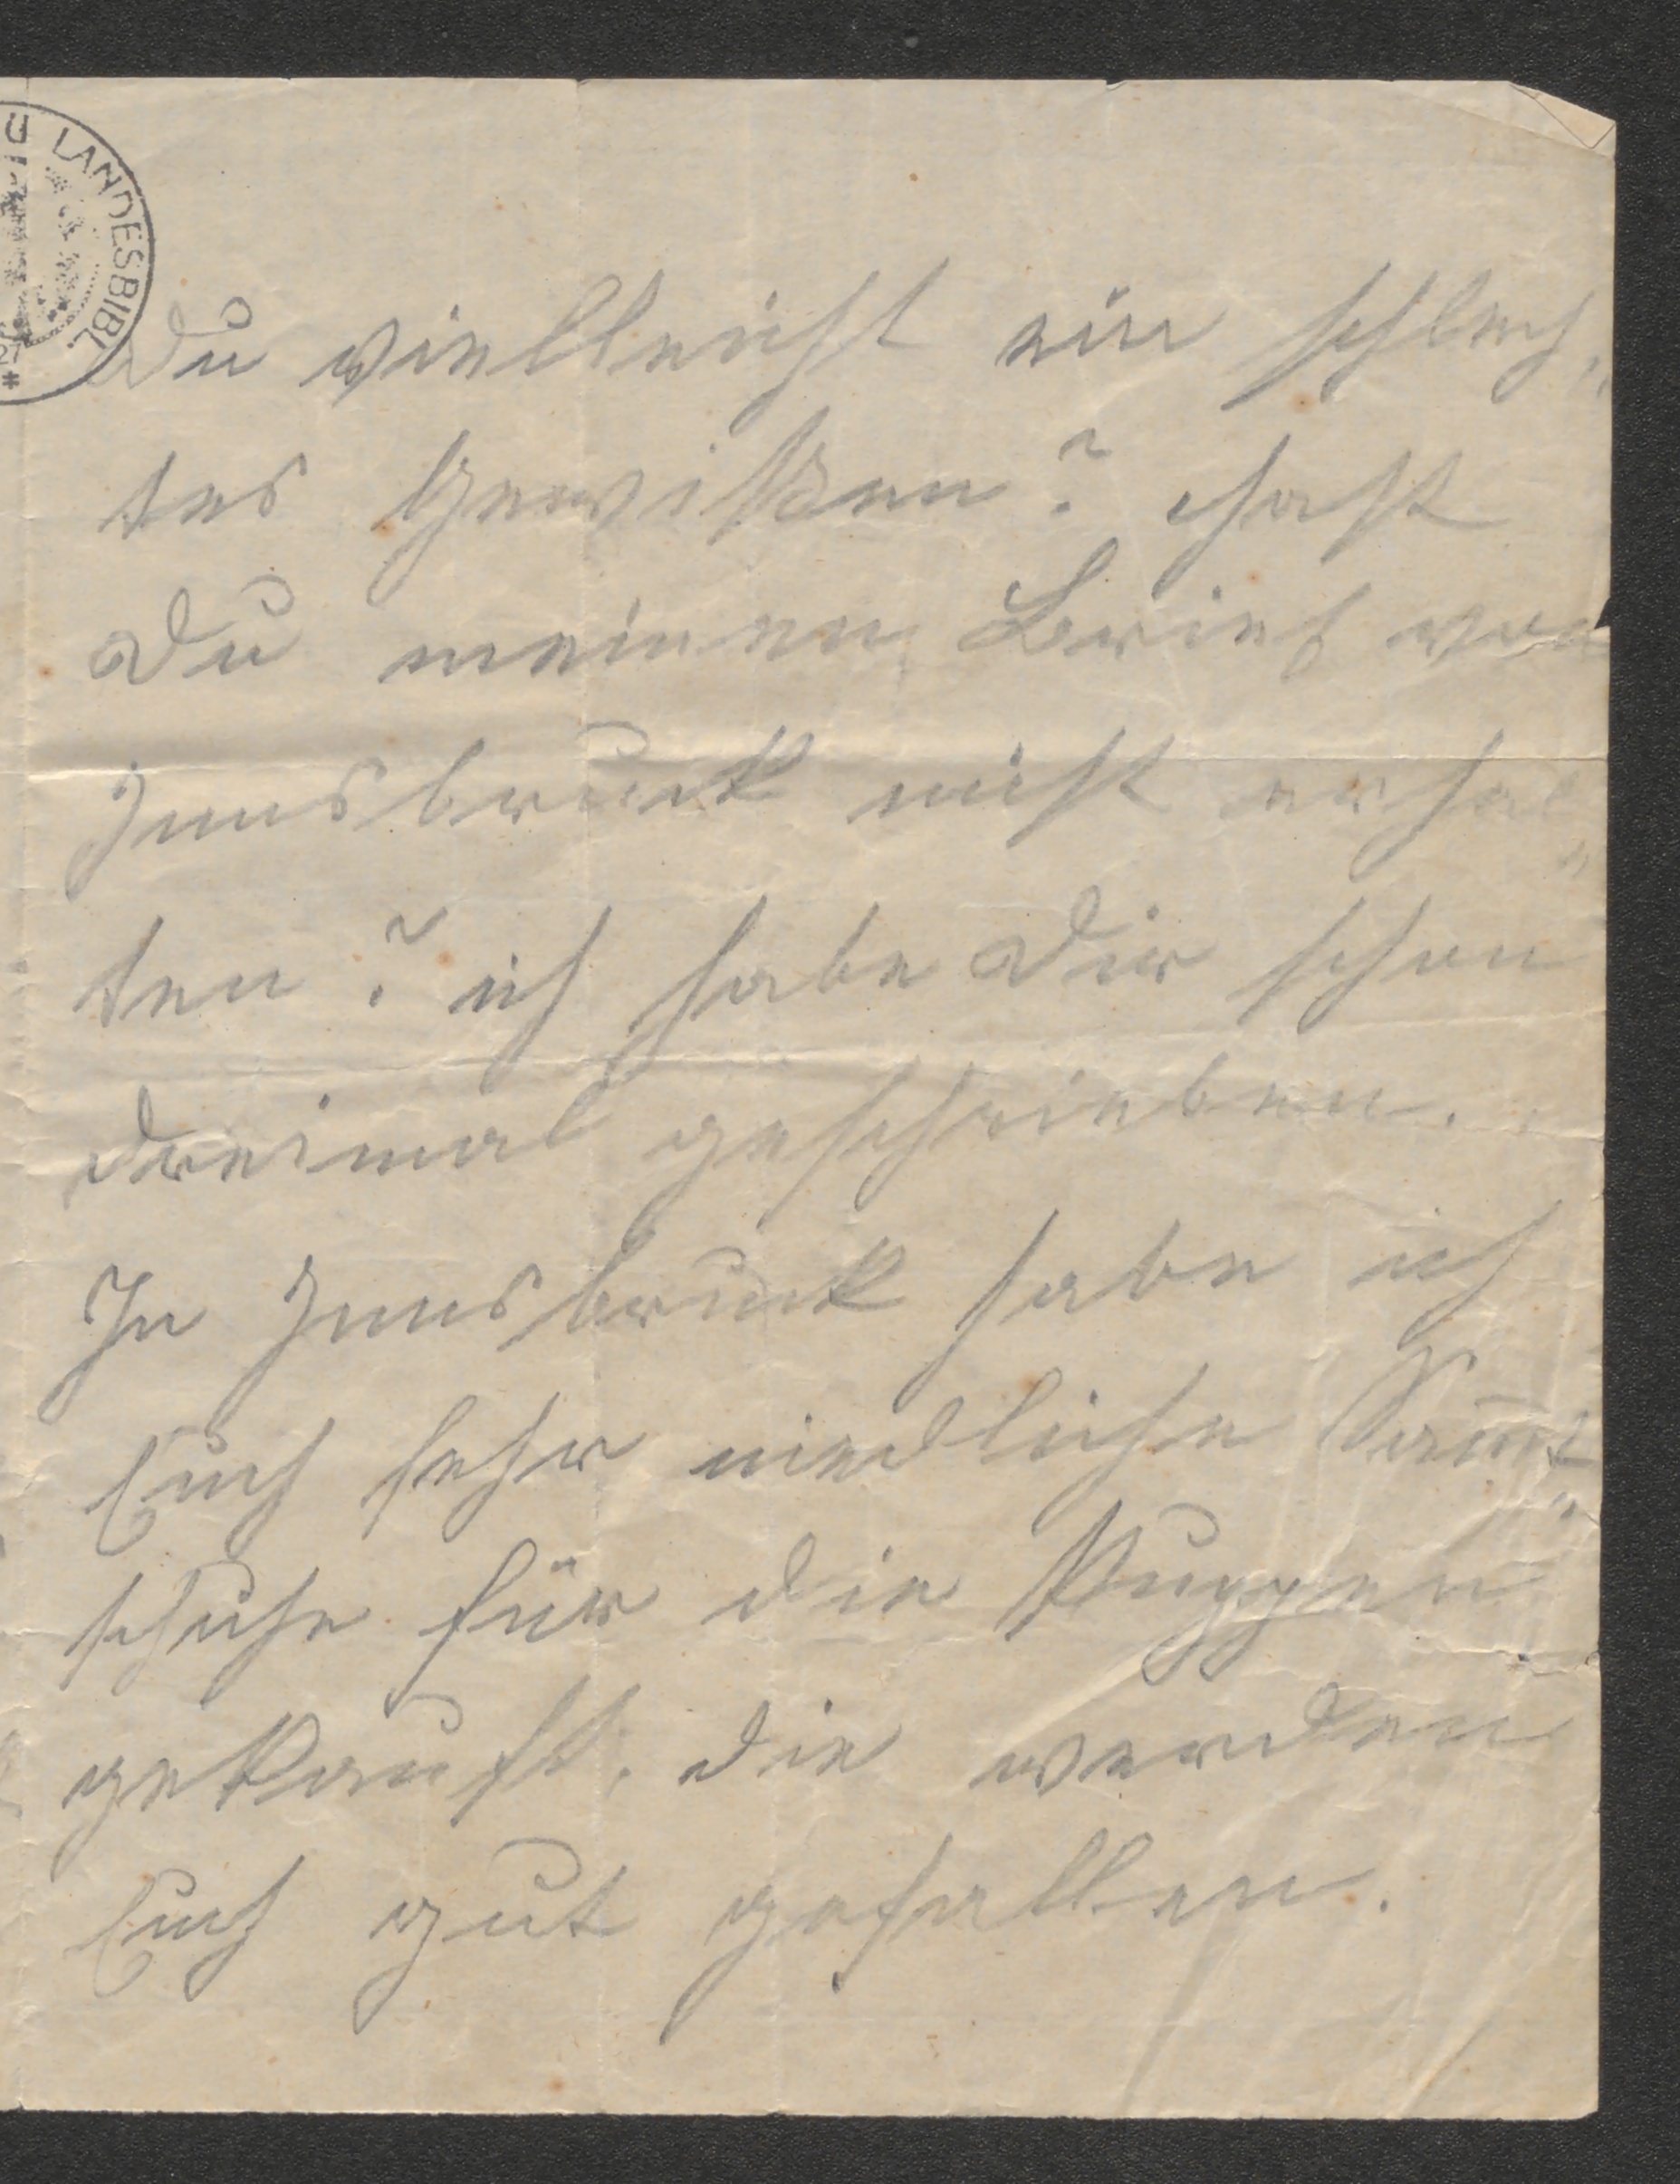 LANDESBIBL.
Du vielleicht ein schlech„
tes Gewißen? hast
Du meinen Brief von
Innsbruck nicht erhal„
ten? ich habe Dir schon
dreimal geschrieben.
In Innsbruck habe ich
Euch sehr niedliche Sam̅t„
schuhe für die Puppen
gekauft, die werden
Euch gut gefallen.